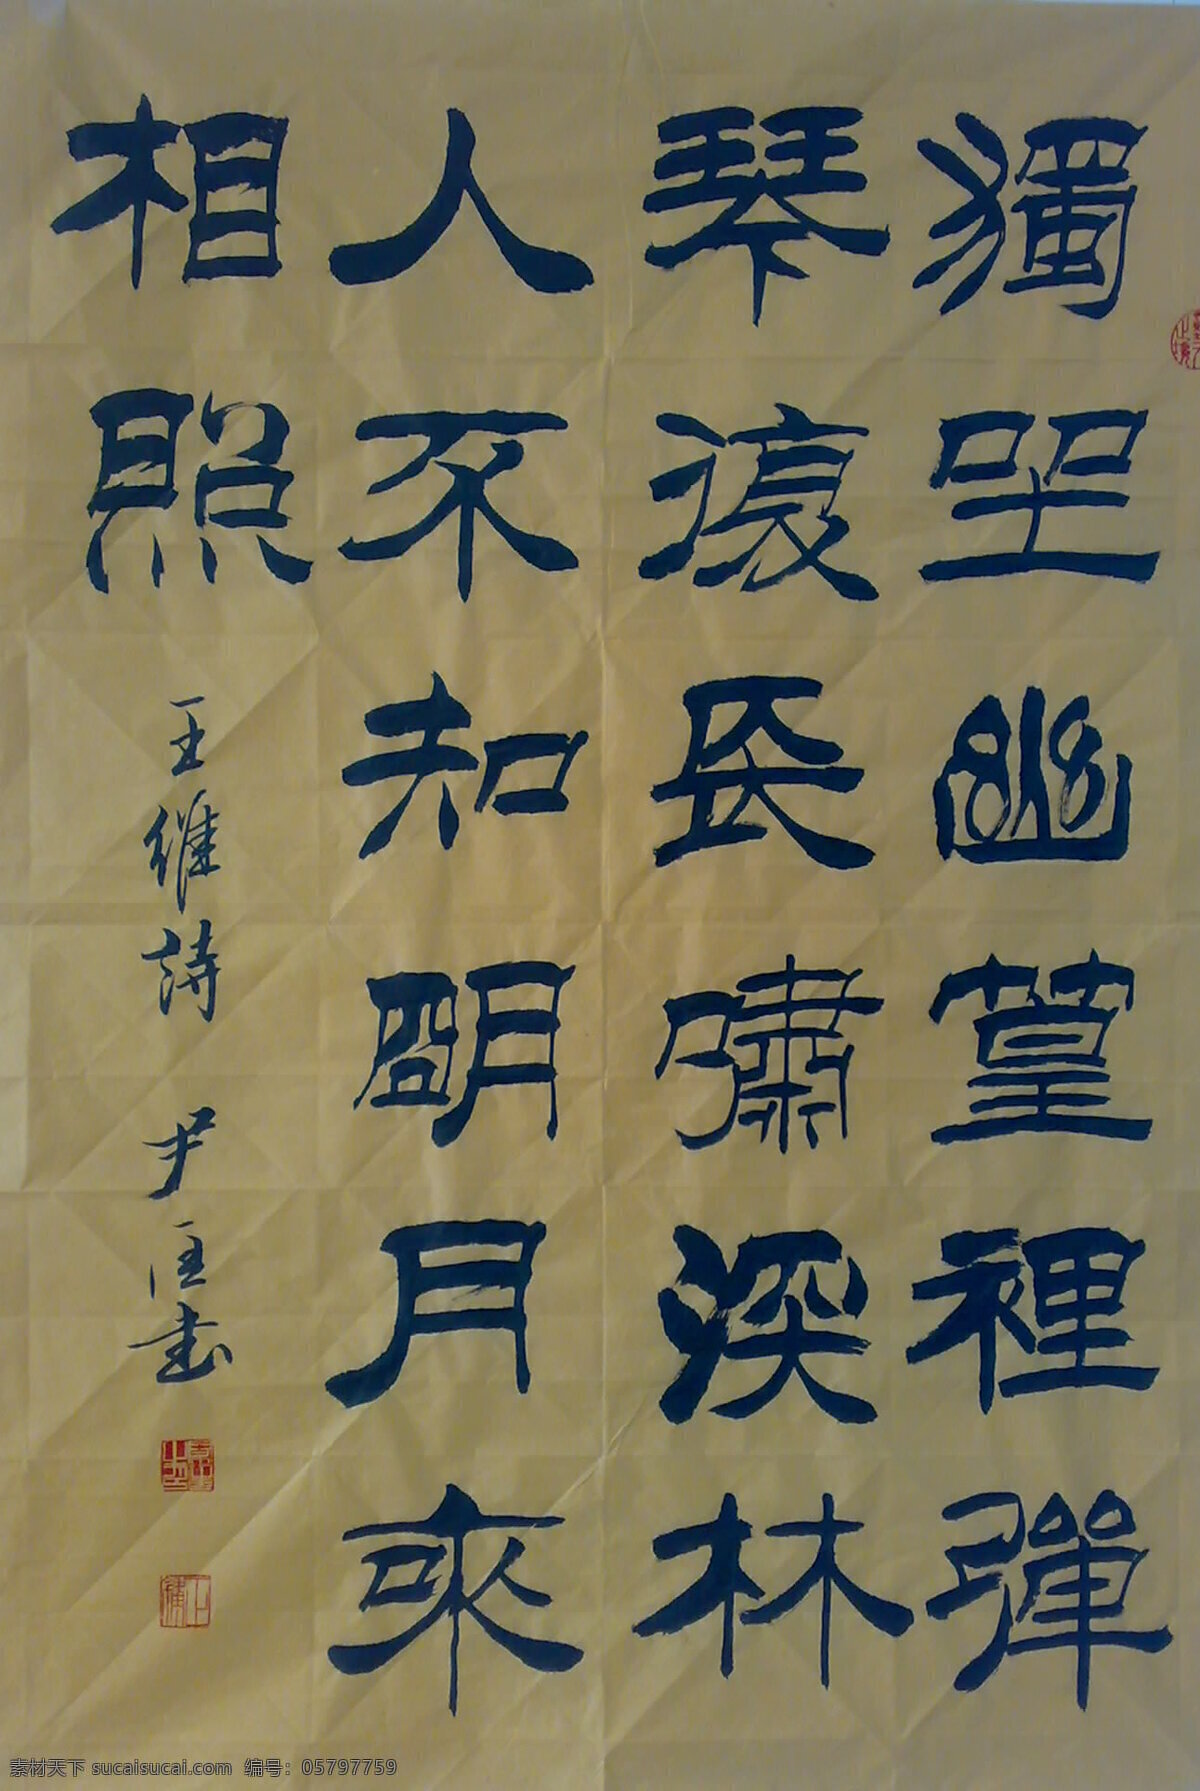 獨坐幽篁裡彈
琴復長嘯深林
人不知明月來
相照
王維詩 尹 書
素材天下 sucaisucai.com 编号：05797759